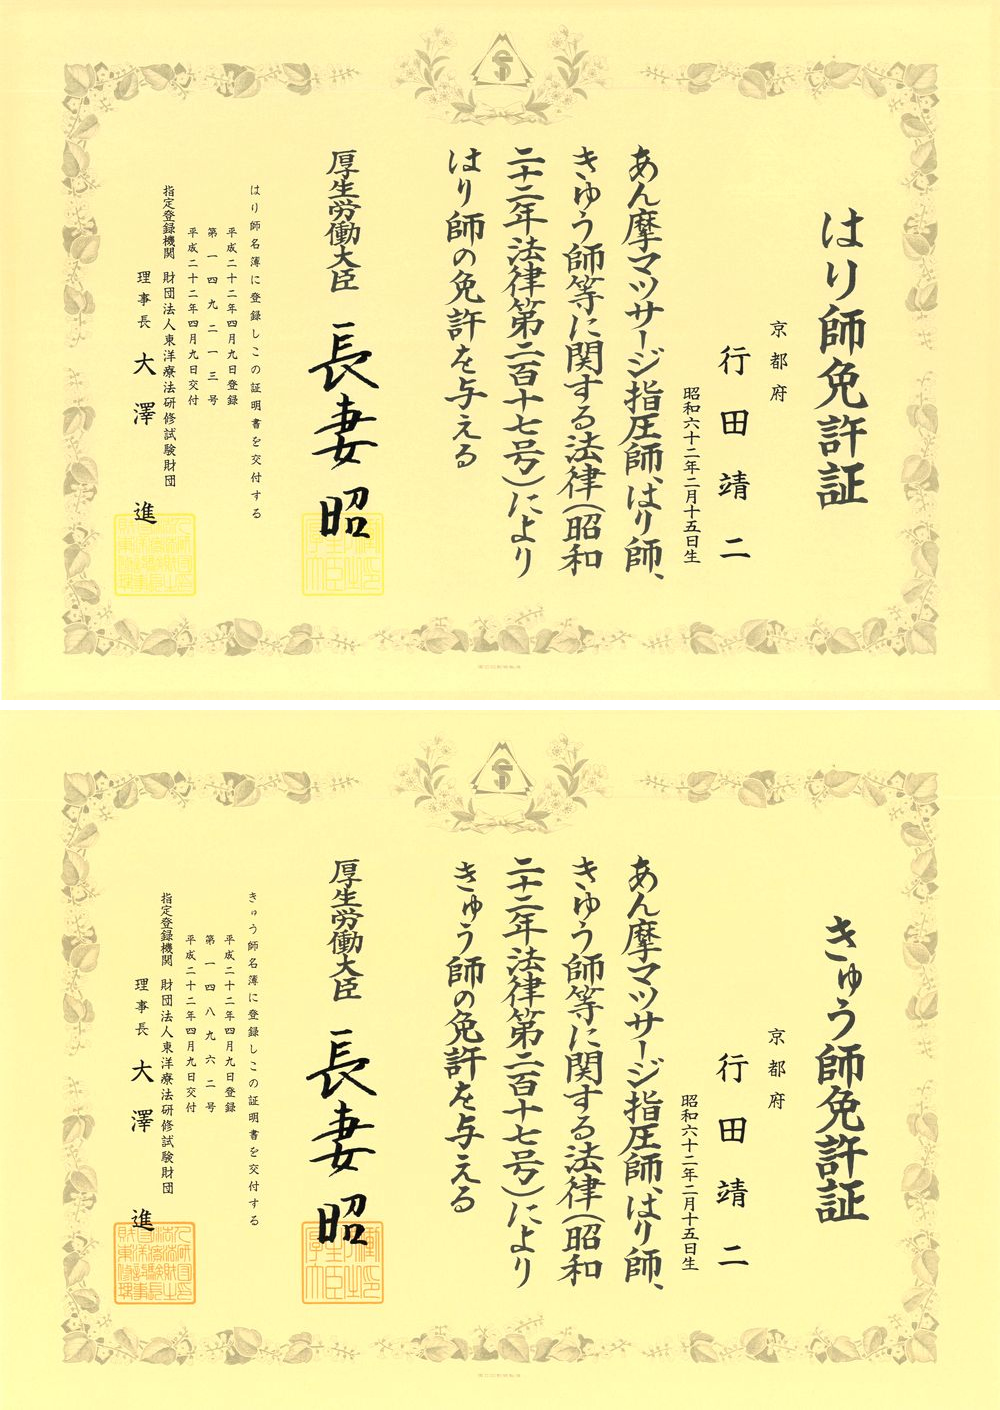 はり師免許証
京都府
行田靖二
昭和六十二年二月十五日生
あん摩マツサージ指圧師、はり師、
きゆう師等に関する法律(昭和
二十二年法律第二百十七号)により
はり師の免許を与える
厚生労働大臣 長妻昭
はり師名簿に登録しこの証明書を交付する
平成二十二年四月九日登録
第一四九二一三号
平成二十二年四月九日交付
指定登録機関 財団法人東洋療法研修試験財団
理事長 大澤 進
きゅう師免許証
京都府
行田靖二
昭和六十二年二月十五日生
あん摩マツサージ指圧師、はり師、
きゆう師等に関する法律(昭和
二十二年法律第二百十七号)により
きゅう師の免許を与える
厚生労働大臣 長妻昭
きゅう師名簿に登録しこの証明書を交付する
平成二十二年四月九日登録
第一四八九六二号
平成二十二年四月九日交付
指定登録機関 財団法人東洋療法研修試験財団
理事長 大澤 進